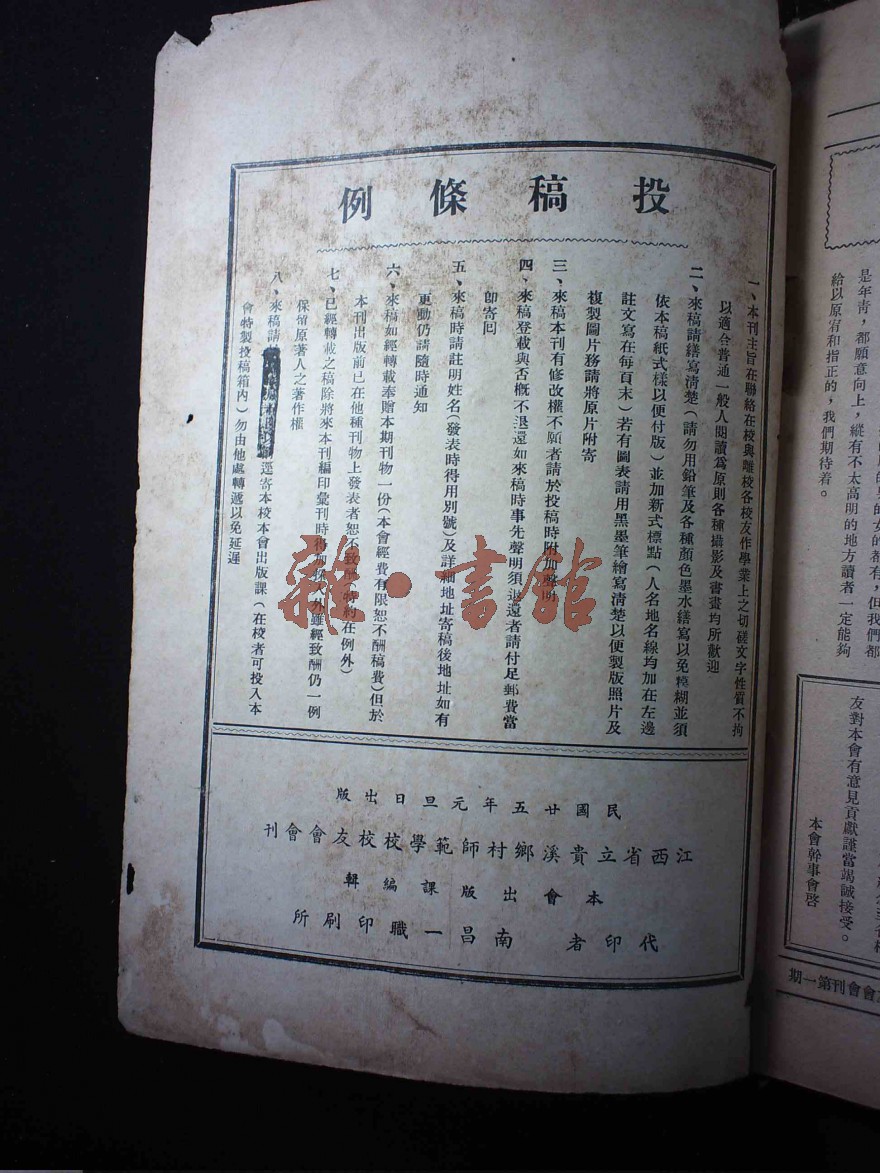 投稿條例
一、本刊主旨在聯絡在校與離校各校友作學業上之切磋文字性質不拘
以適合普通一般人閱讀爲原則各種攝影及書畫均所歡迎
二、來稿請繕寫清楚(請勿用鉛筆及各種顏色墨水繕寫以免糢糊並須
依本稿紙式樣以便付版)並加新式標點(人名地名線均加在左邊
註文寫在每百末)若有圖表請用黑墨筆繪寫清楚以便製版照片及
複製圖片務請將原片附寄
三、來稿本刊有修改權不願者請於投稿時附加聲明
四、來稿登載與否概不退還如來稿時事先聲明須退還者請付足郵費當
卽寄回
五、來稿時請註明姓名(發表時得用別號)及詳細地址寄稿後地址如有
更動仍請隨時通知
六、來稿如經轉載奉贈本期刊物一份(本會經費有限恕不酬稿費)但於
本刊出版前已在他種刊物上發表者恕不致酬(特約在例外)
七、已經轉載之稿除將來本刊編印彙刊時得加採入外雖經致酬仍一例
保留原著人之著作權
八、來稿請 逕寄本校本會出版課(在校者可投入本
會特製投稿箱內)勿由他處轉遞以免延遲
民國廿五年元旦日出版
江西省立貴溪鄉村師範學校校友會會刊
本會出版課編輯
代印者 南昌一職印刷所
雜·書館
是年靑，都願意向上，縱有不太高明的地方讀者一定能夠
給以原宥和指正的，我們期待着。
友對本會有意見貢獻謹當竭誠接受。
本會幹事會啓
會會刊第一期